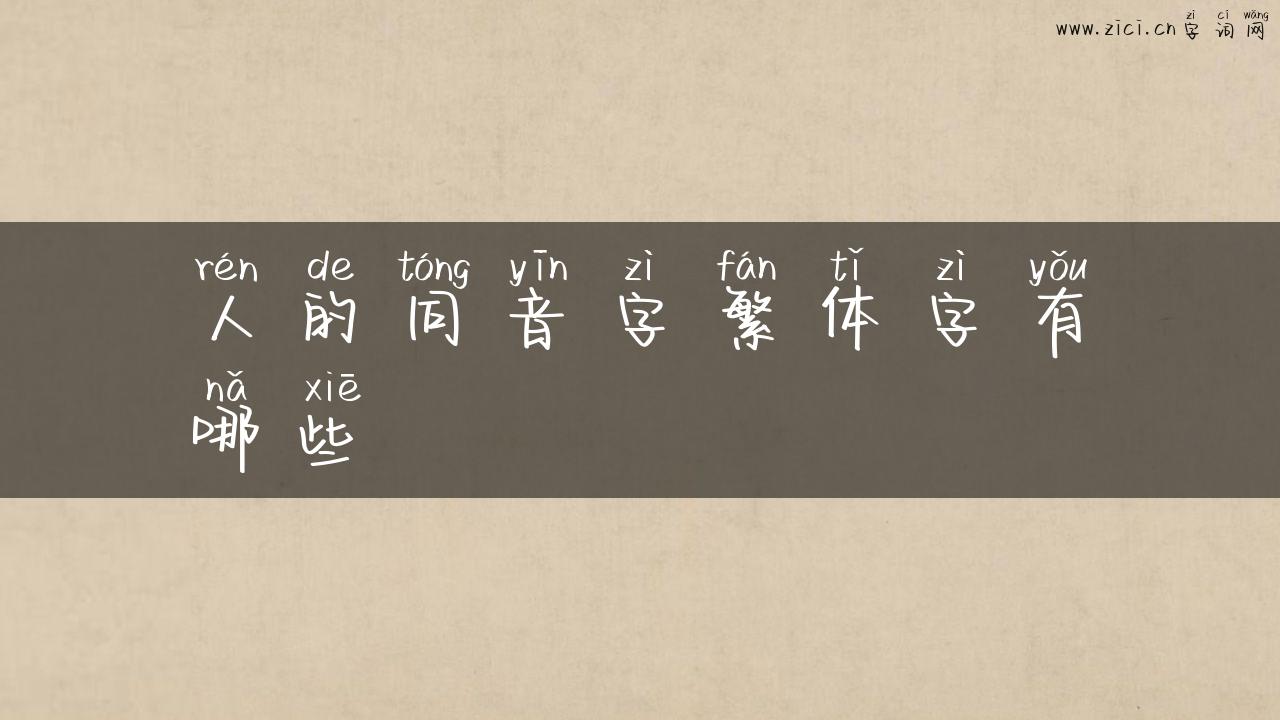 zì cí wǎng
www.zici.cn 字 词 网
rén de tóng yīn zì fán tǐ zì yǒu
人 的 同 音 字 繁 体 字 有
nǎ xiē
哪 些